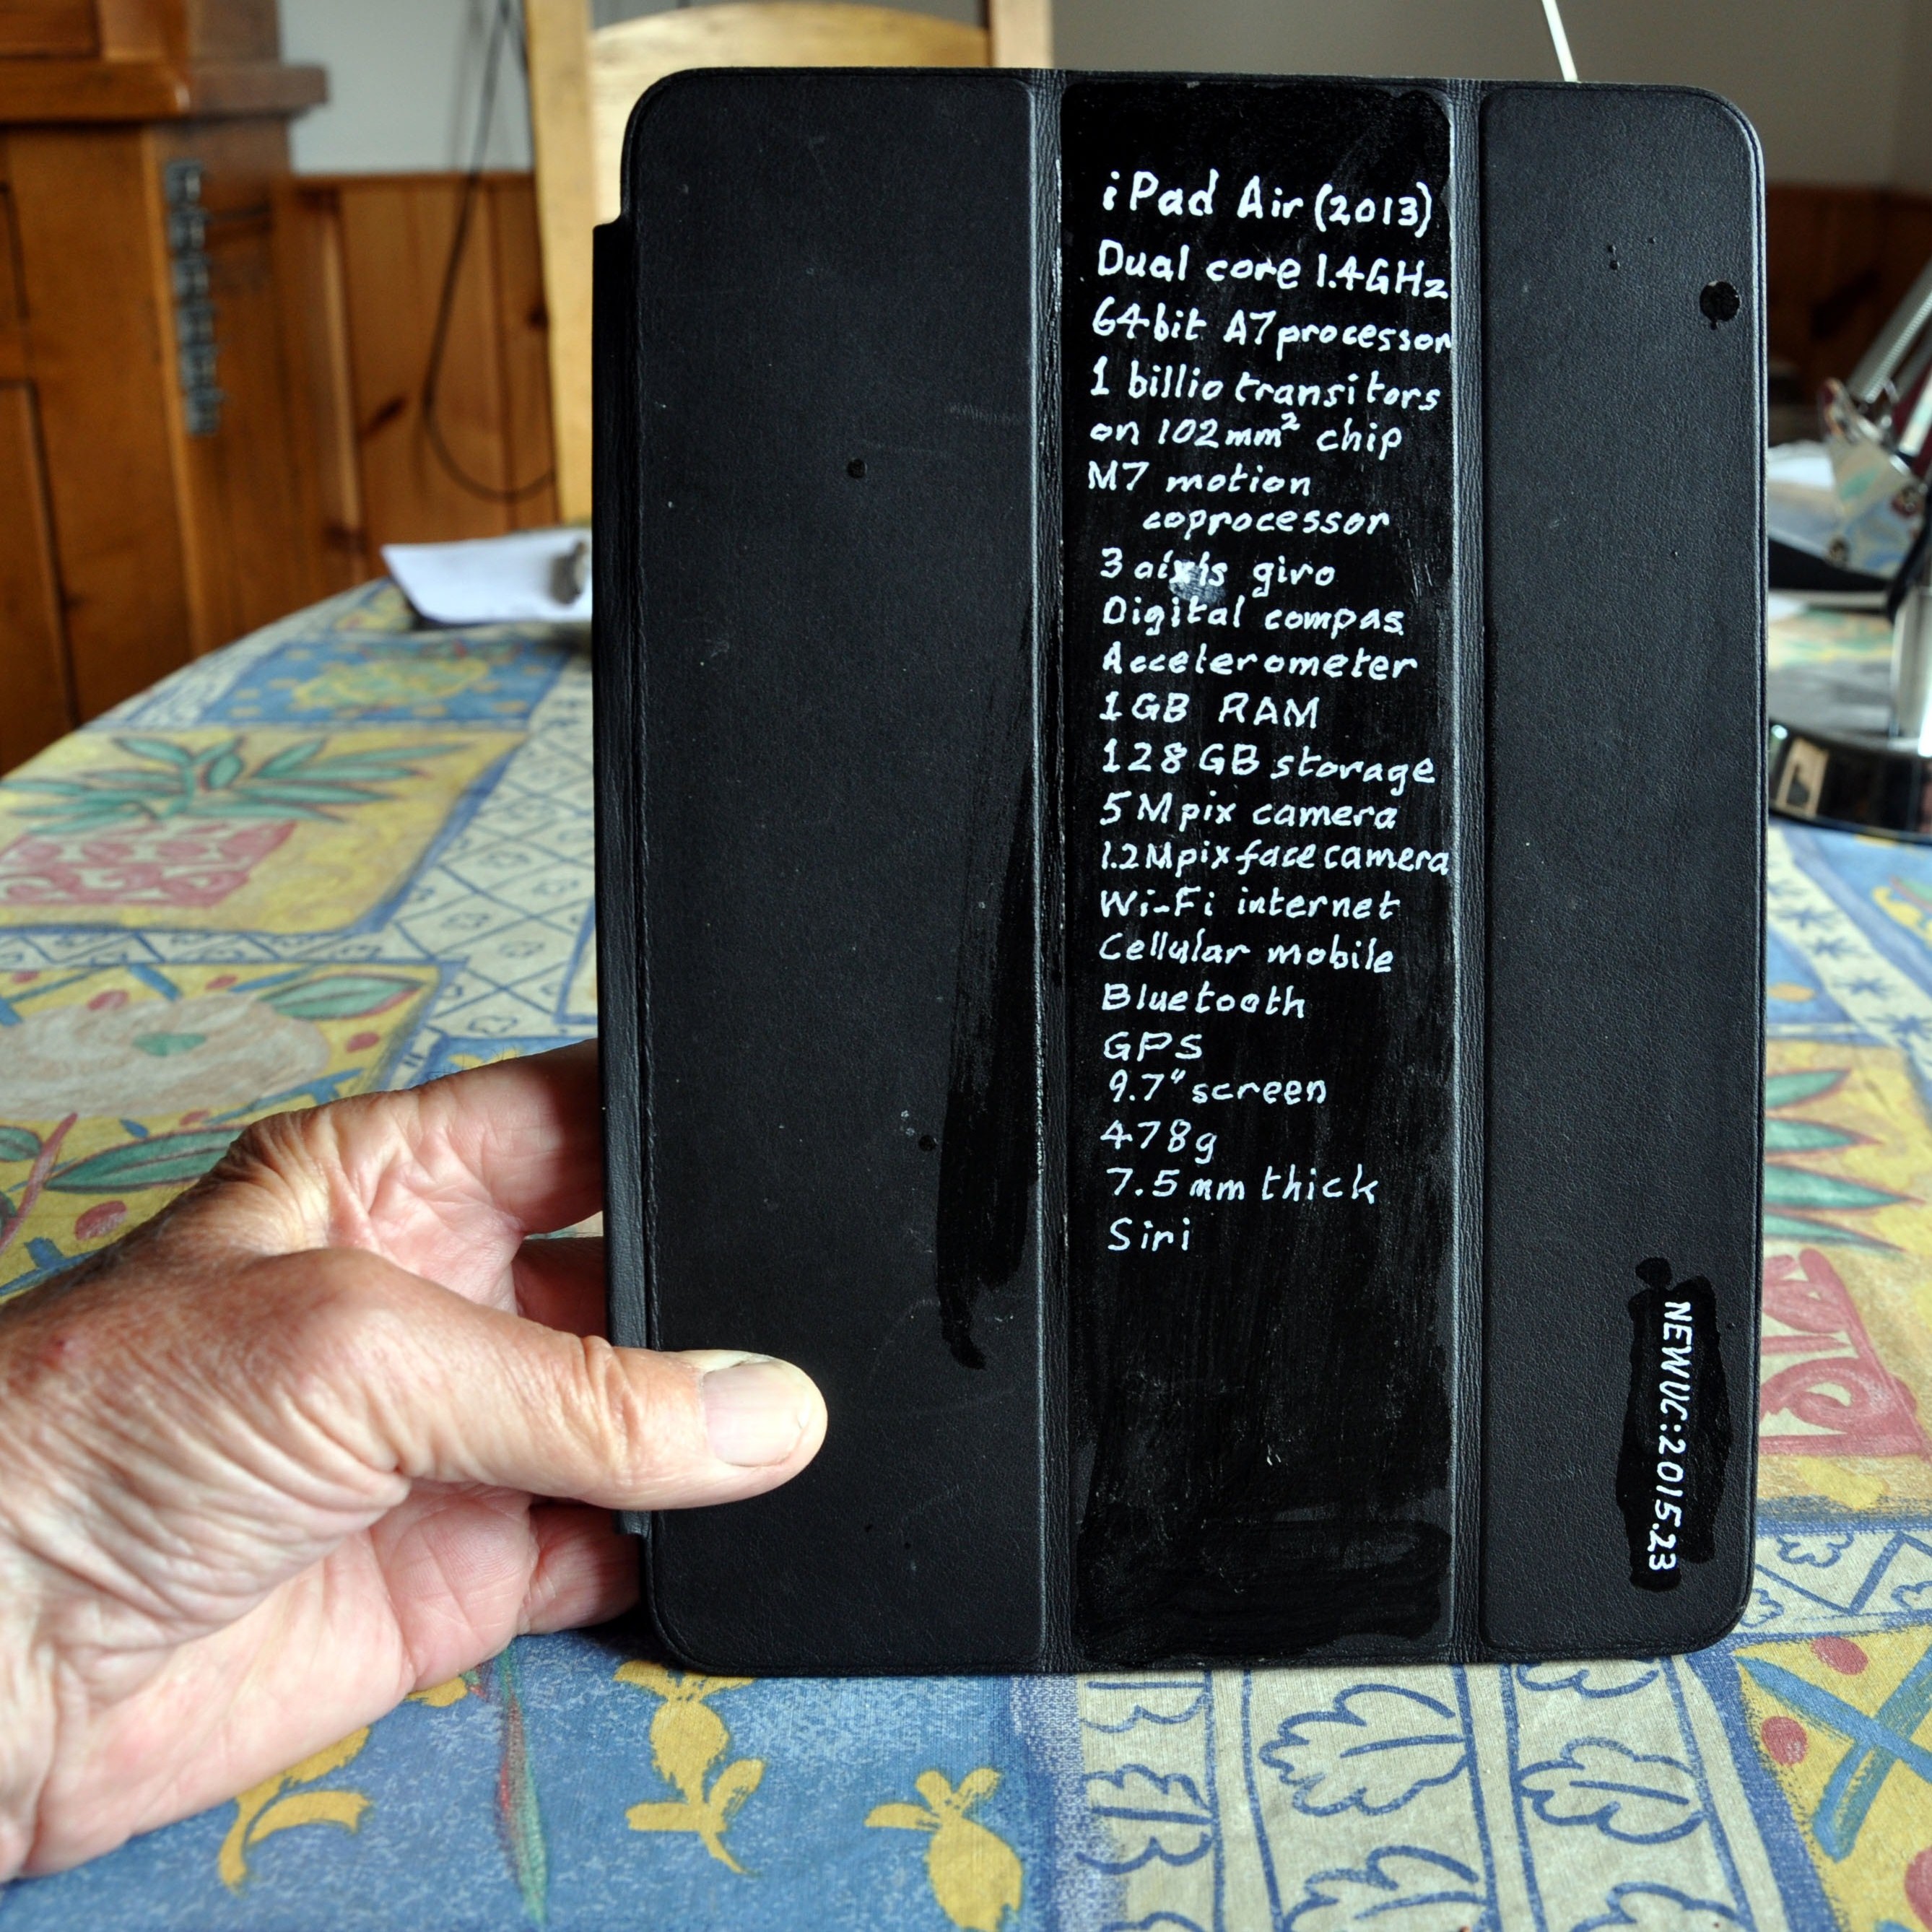 iPad Air (2013)
Dual core 1.4GHz
64bit A7 processor
1 billio transitors
on 102mm² chip
M7 motion
coprocessor
3 aixis giro
Digital compas
Accelerometer
1GB RAM
128GB storage
5 Mpix camera
1.2Mpix face camera
Wi-Fi internet
Cellular mobile
Bluetooth
GPS
9.7" screen
478g
7.5mm thick
Siri
NEWUC:2015.23